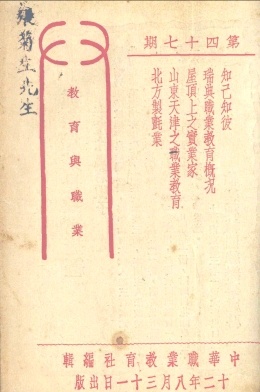 第四十七期
知己知彼
瑞典職業教育概況
屋頂上之實業家
山東天津之職業教育
北方製氈業
教育與職業
張菊生先生
中華職業教育社編輯
十二年八月三十一日出版